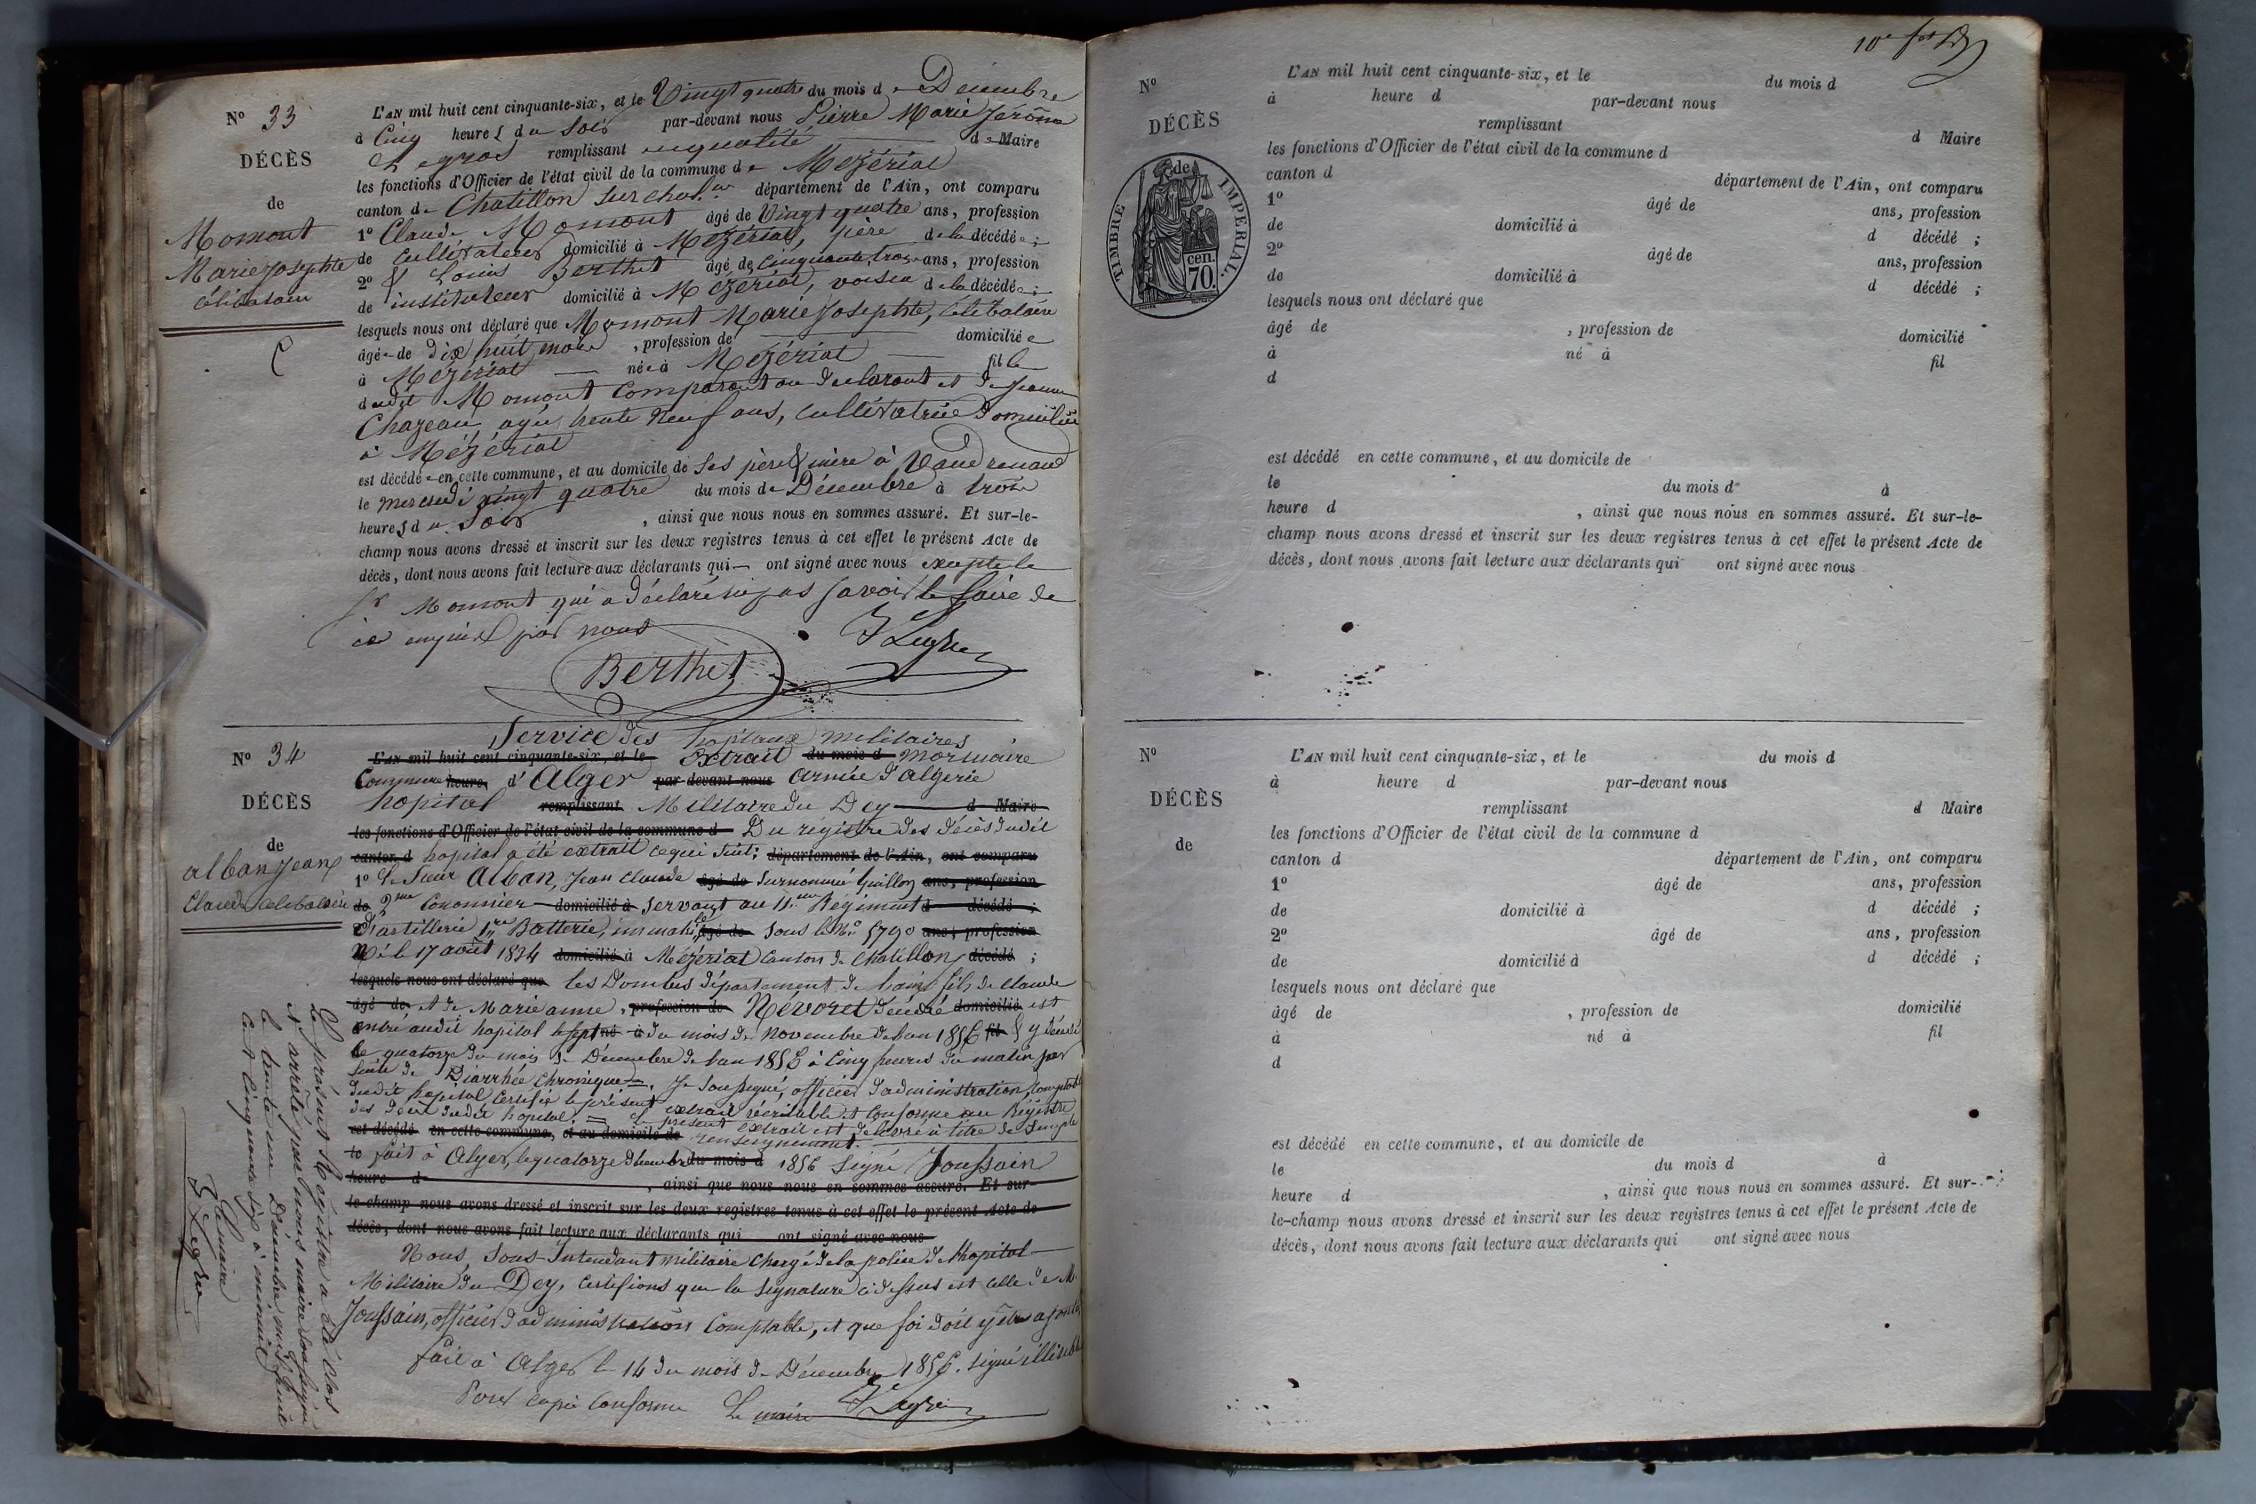 N° 33
DÉCÈS
de
Momont
Marie Josephte
célibataire
L'AN mil huit cent cinquante-six, et le Vingt quatre du mois de Décembre
à Cinq heures du Soir par-devant nous Pierre Marie Jérôme
Legros remplissant en qualité de Maire
les fonctions d'Officier de l'état civil de la commune de Mézériat
canton de Chatillon sur chal.ne département de l'Ain, ont comparu
1° Claude Momont âgé de Vingt quatre ans, profession
de cultivateur domicilié à Mézériat, père de la décédée ;
2° Louis Berthet âgé de cinquante trois ans, profession
de instituteur domicilié à Mézériat, voisin de la décédée ;
lesquels nous ont déclaré que Momont Marie Josephte, célibataire
âgée de dix huit mois , profession de domiciliée
à Mézériat née à Mézériat fille
dudit Momont Comparant ou declarant et de Jeanne
Chazeau, agée trente neuf ans, cultivatrice domiciliée
à Mézériat
est décédée en cette commune, et au domicile de ses père & mère à Vaud renaud
le mercredi vingt quatre du mois de Décembre à trois
heures du Soir , ainsi que nous nous en sommes assuré. Et sur-le-
champ nous avons dressé et inscrit sur les deux registres tenus à cet effet le présent Acte de
décès, dont nous avons fait lecture aux déclarants qui ont signé avec nous excepté le
Sr Momont qui a déclaré ne pas savoir le faire de
ce enquis par nous
Berthet
N° 34
DÉCÈS
de
alban Jean
Claude célibataire
Service des hopitaux militaires
L'AN mil huit cent cinquante-six, et le Extrait du mois d mortuaire
Commune heure d'Alger par devant nous armée d'algerie
hopital remplissant Militaire du Dey d Maire
les fonctions d'Officier de l'état civil de la commune d Du régistre des décès dudit
canton d hopital a été extrait ce qui suit; département de l'Ain, ont comparu
1° Le Sieur Alban, Jean Claude âgé de Surnommé Guillon ans, profession
de 2me Canonnier domicilié à servant au 11.me Régiment d décédé ;
d'artillerie 1re Batterie, immatlé âgé de sous le No 5790 ans, profession
Né le 17 août 1834 domicilié à Mézériat canton de chatillon décédé ;
lesquels nous ont déclaré que les Dombes département de l'ain fils de claude
âgé de et de Marie anne , profession de Névoret décédé domicilié est
entré audit hopital le sept né à du mois de Novembre de l'an 1856 fil & y décédé
le quatorze du mois de Décembre de l'an 1856 à Cinq heures du matin par
suite de Diarrhée chronique. Je soussigné, officier d'administration, comptable
dudit hopital certifie le présent extrait véritable & conforme au Régistre
des décès dudit hopital. Le présent extrait est délivré à titre de simple
est décédé en cette commune, et au domicile de renseignement.
le fait à Alger, le quatorze décembre du mois d 1856 signé Joussain
heure d , ainsi que nous nous en sommes assuré. Et sur-
le-champ nous avons dressé et inscrit sur les deux registres tenus à cet effet le présent Acte de
décès, dont nous avons fait lecture aux déclarants qui ont signé avec nous
Nous, Sous-Intendant militaire chargé de la police de l'hopital
Militaire du Dey, certifions que la signature ci dessus est celle de M.
Joussain, officier d'administration Comptable, et que foi doit y être ajoutée
fait à Alger le 14 du mois de Décembre 1856. signé illisible
Pour copie conforme Le maire JLegros
Le présent Régistre a été clos
et arrêté par nous maire soussigné
le trente un Décembre mil huit
cent cinquante six à minuit
Le maire
JLegros
10e f
N°
DÉCÈS
TIMBRE IMPÉRIAL.
de
cen.
70.
L'AN mil huit cent cinquante-six, et le du mois d
à heure d par-devant nous
remplissant d Maire
les fonctions d'Officier de l'état civil de la commune d
canton d département de l'Ain, ont comparu
1° âgé de ans, profession
de domicilié à d décédé ;
2° âgé de ans, profession
de domicilié à d décédé ;
lesquels nous ont déclaré que
âgé de , profession de domicilié
à né à fil
d
est décédé en cette commune, et au domicile de
le du mois d à
heure d , ainsi que nous nous en sommes assuré. Et sur-le-
champ nous avons dressé et inscrit sur les deux registres tenus à cet effet le présent Acte de
décès, dont nous avons fait lecture aux déclarants qui ont signé avec nous
N°
DÉCÈS
de
L'AN mil huit cent cinquante-six, et le du mois d
à heure d par-devant nous
remplissant d Maire
les fonctions d'Officier de l'état civil de la commune d
canton d département de l'Ain, ont comparu
1° âgé de ans, profession
de domicilié à d décédé ;
2° âgé de ans, profession
de domicilié à d décédé ;
lesquels nous ont déclaré que
âgé de , profession de domicilié
à né à fil
d
est décédé en cette commune, et au domicile de
le du mois d à
heure d , ainsi que nous nous en sommes assuré. Et sur-
le-champ nous avons dressé et inscrit sur les deux registres tenus à cet effet le présent Acte de
décès, dont nous avons fait lecture aux déclarants qui ont signé avec nous